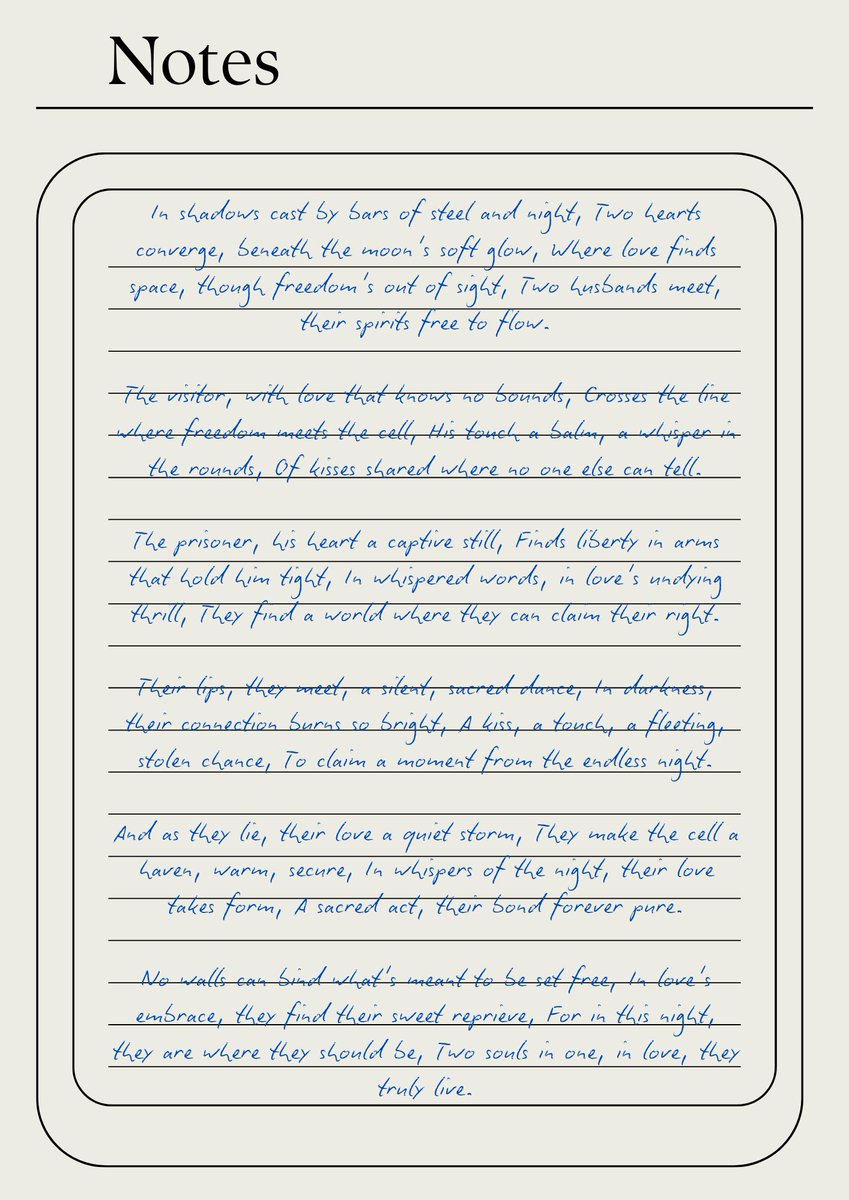 Notes
In shadows cast by bars of steel and night, Two hearts
converge, beneath the moon's soft glow, Where love finds
space, though freedom's out of sight, Two husbands meet,
their spirits free to flow.
The visitor, with love that knows no bounds, Crosses the line
where freedom meets the cell, His touch a balm, a whisper in
the rounds, Of kisses shared where no one else can tell.
The prisoner, his heart a captive still, Finds liberty in arms
that hold him tight, In whispered words, in love's undying
thrill, They find a world where they can claim their right.
Their lips, they meet, a silent, sacred dance, In darkness,
their connection burns so bright, A kiss, a touch, a fleeting,
stolen chance, To claim a moment from the endless night.
And as they lie, their love a quiet storm, They make the cell a
haven, warm, secure, In whispers of the night, their love
takes form, A sacred act, their bond forever pure.
No walls can bind what's meant to be set free, In love's
embrace, they find their sweet reprieve, For in this night,
they are where they should be, Two souls in one, in love, they
truly live.